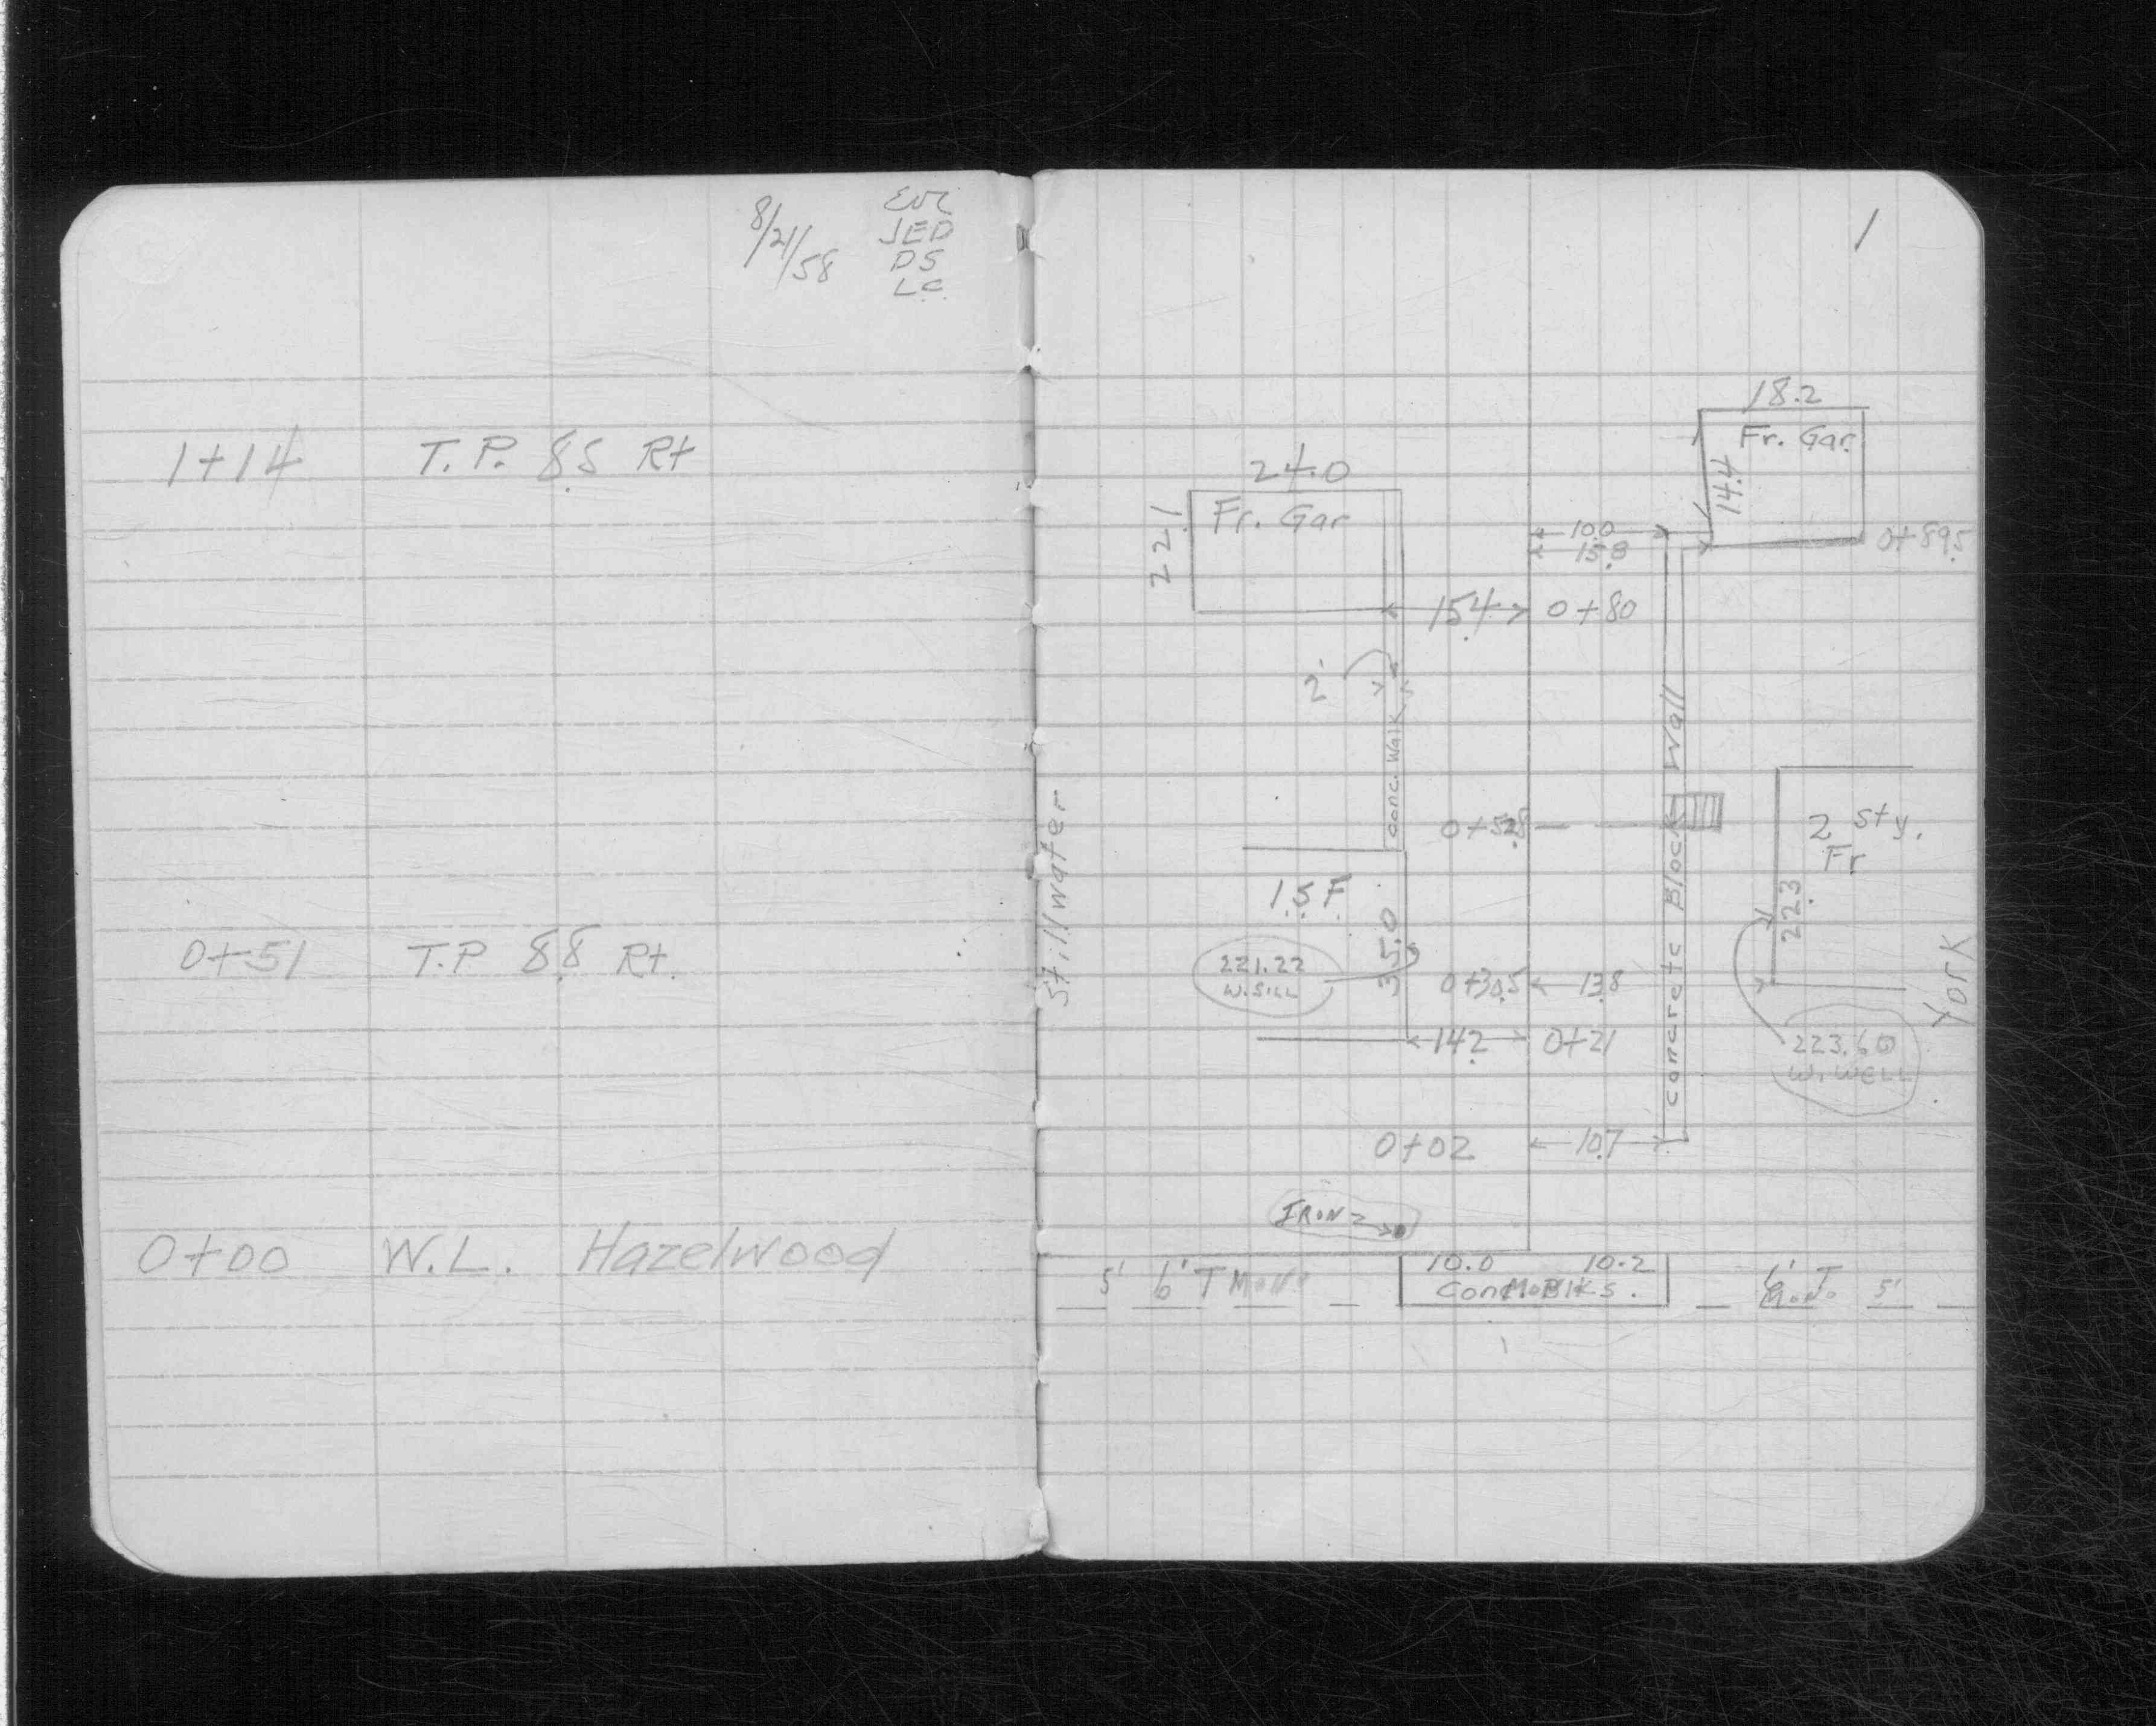 8/21/58
EVC
JED
DS
LC
1+14 T.P. 8.5 Rt
0+51 T.P 8.8 Rt.
0+00 W.L. Hazelwood
1
18.2
Fr. Gar.
14.4
24.0
Fr. Gar
22.1
10.0
15.8
0+89.5
15.4
0+80
2'
conc. Walk
Concrete Block Wall
Stillwater
0+52.8
2 Sty.
Fr
22.3
1.5 F.
35.0
221.22
W. SILL
0+30.5
13.8
York
14.2
0+21
223.60
W. WELL
0+02
10.7
IRON
10.0 10.2
5' 6' T 6' T 5'